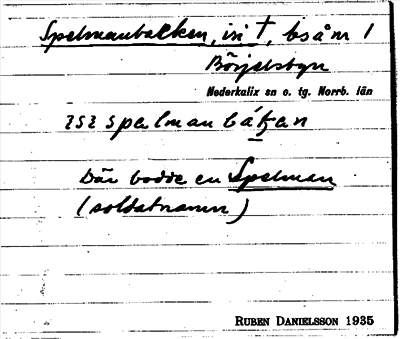 Spelmanbacken, in †, bsåm 1
Börjelsbyn
Nederkalix sn o. tg. Norrb. län
spelman
Där bodde en Spelman
(soldatnamn)
RUBEN DANIELSSON 1935